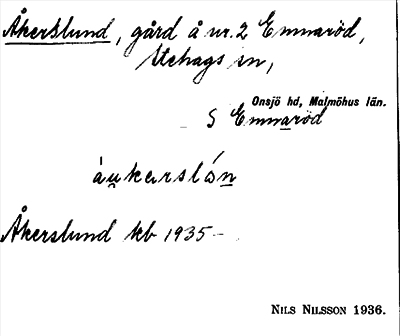 Åkerslund, gård å nr. 2 Emmaröd,
Stehags sn,
Onsjö hd, Malmöhus län.
S Emmaröd
åukerslón
Åkerslund kb 1935–
NILS NILSSON 1936.